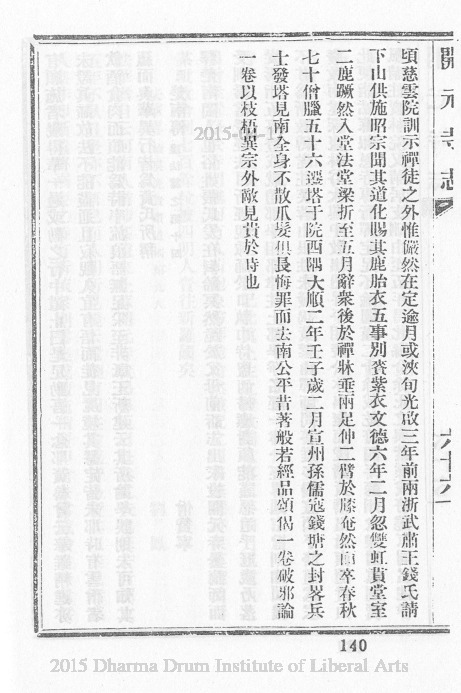 開元寺志
六十六
頃慈雲院訓示禪徒之外惟儼然在定逾月或浹旬光啟三年前兩浙武肅王錢氏請
下山供施昭宗聞其道化賜其鹿胎衣五事別賚紫衣文德六年二月忽雙虹貫堂室
二鹿蹶然入堂法堂梁折至五月辭衆後於禪牀垂兩足伸二臂於膝奄然而卒春秋
七十僧臘五十六遷塔于院西隅大順二年壬子歲二月宣州孫儒寇錢塘之封畧兵
士發塔見南全身不散爪髮俱長悔罪而去南公平昔著般若經品頌偈一卷破邪論
一卷以枝梧異宗外敵見貴於時也
140
2015 Dharma Drum Institute of Liberal Arts